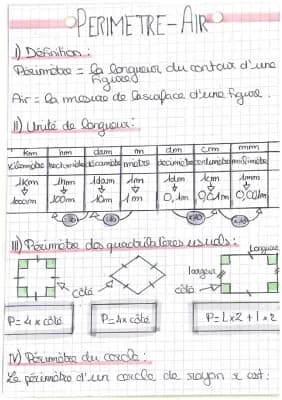 PERIMETRE-AIR
I) Définition :
Périmètre = la longueur du contour d'une figure
Air = la mesure de la surface d'une figure.
II) Unité de longueur :
Km hm dam m dm cm mm
kilomètre hectomètre décamètre mètre décimètre centimètre millimètre
1Km 1hm 1dam 1m 1dm 1cm 1mm
1000m 100m 10m 1m 0,1m 0,01m 0,001m
III) Périmètre des quadrilatères usuels :
Longueur
largeur
côté côté
P=4×côté P=4×côté P=L×2+l×2
IV) Périmètre du cercle :
Le périmètre d'un cercle de rayon r est :